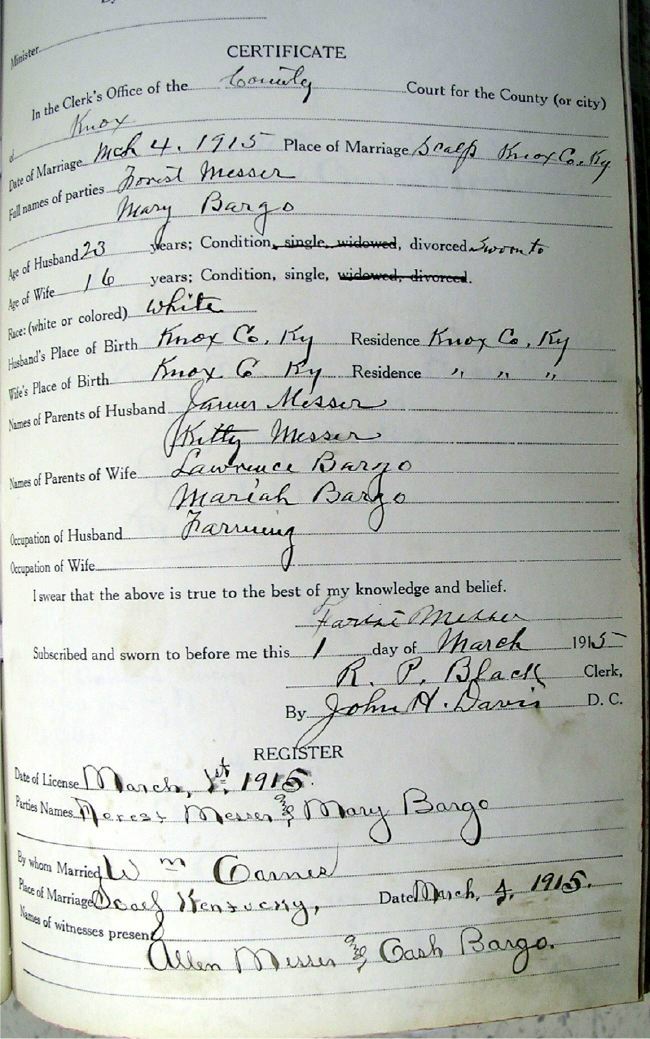 Minister.
CERTIFICATE
In the Clerk's Office of the County Court for the County (or city)
of Knox
Date of Marriage Mch 4. 1915 Place of Marriage Scalf Knox Co. Ky
Full names of parties Forest Messer
Mary Bargo
Age of Husband 23 years; Condition, single, widowed, divorced Sworn to
Age of Wife 16 years; Condition, single, widowed, divorced.
Race: (white or colored) White
Husband's Place of Birth Knox Co. Ky Residence Knox Co. Ky
Wife's Place of Birth Knox C Ky Residence " " "
Names of Parents of Husband James Messer
Kitty Messer
Names of Parents of Wife Lawrence Bargo
Mariah Bargo
Occupation of Husband Farming
Occupation of Wife
I swear that the above is true to the best of my knowledge and belief.
Messer
Subscribed and sworn to before me this 1 day of March 1915
R. P. Black Clerk,
By John H. Davis D. C.
REGISTER
Date of License March, 1st. 1915.
Parties Names Messer and Mary Bargo
By whom Married Wm Carnes
Place of Marriage Scalf Kentucky, Date March, 4, 1915.
Names of witnesses present
Allen Messer and Cash Bargo.